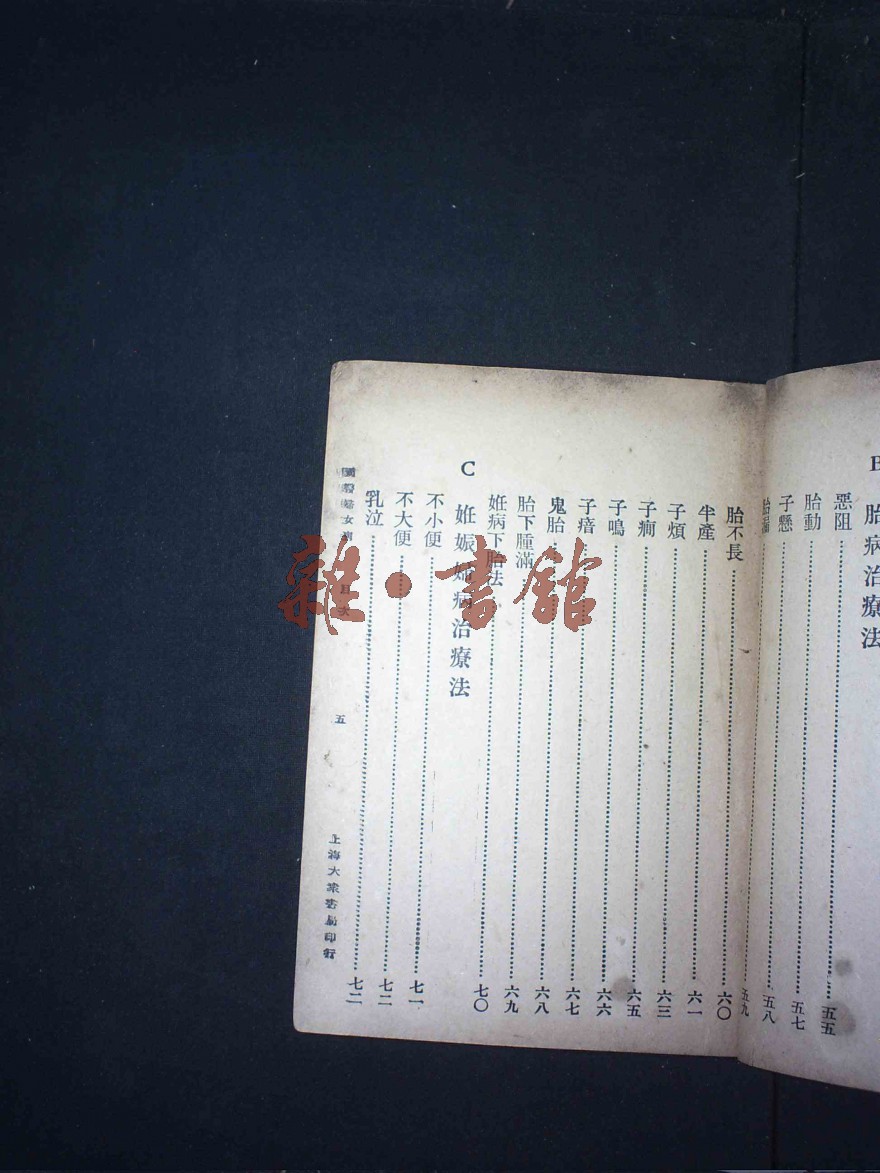 B 胎病治療法
惡阻……五五
胎動……五七
子懸……五八
胎漏……五九
胎不長……六〇
半產……六一
子煩……六三
子癇……六五
子鳴……六六
子瘖……六七
鬼胎……六八
胎下腫滿……六九
妊病下胎法……七〇
C 妊娠婦病治療法
不小便……七一
不大便……七二
乳泣……七二
國醫婦女 目次 五 上海大衆書局印行
雜·書館